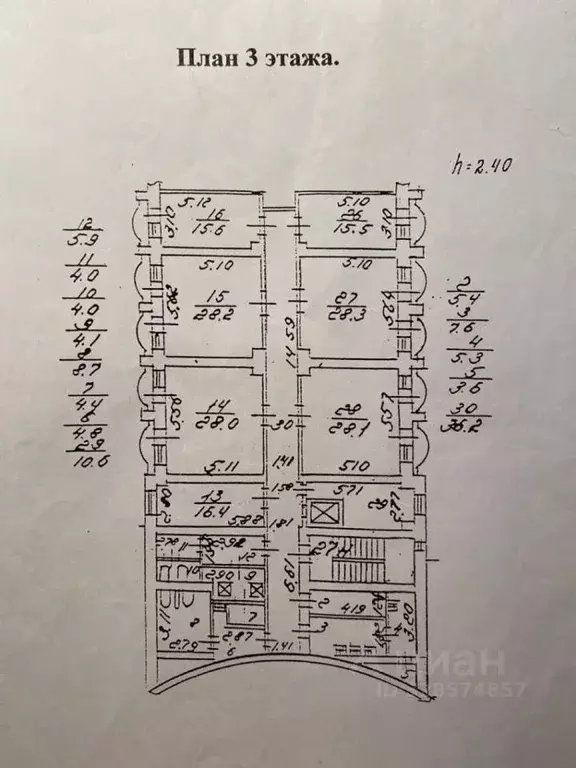 План 3 этажа.
h=2.40
12
5.9
11
4.0
10
4.0
9
4.1
8
8.7
7
4.4
6
4.8
29
10.6
2
5.4
3
7.6
4
5.3
5
3.6
30
36.2
5.12
16
15.6
3.10
5.10
26
15.5
3.10
5.10
15
28.2
5.62
5.10
27
28.3
5.64
14.59
14
28.0
5.56
5.11
30
28
28.1
5.57
5.10
1.41
1.58
13
16.4
2.80
5.88
1.81
5.71
2.77
2.92
11
12
10
2.90
9
6.61
2
4.19
3.20
4
3
3.11
8
7
2.79
2.87
6
1.41
циан